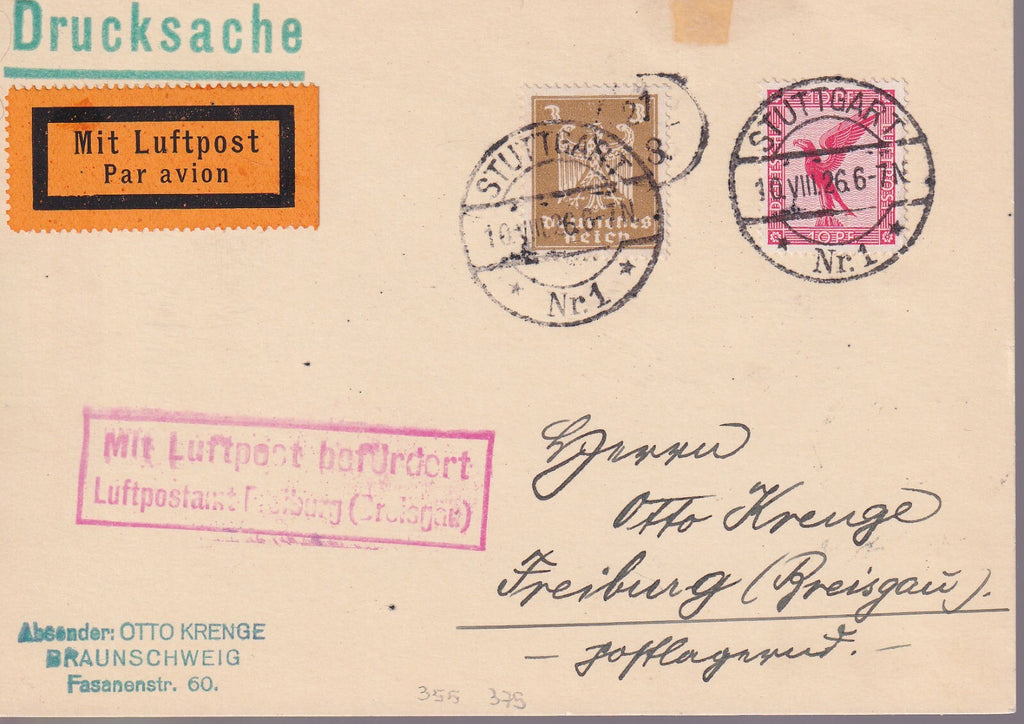 Drucksache
Mit Luftpost
Par avion
STUTTGART
10.VIII.26.6-7N
Nr.1
Deutsches
Reich
STUTTGART
10.VIII.26.6-7N
Nr.1
10 PF
Mit Luftpost befördert
Luftpostamt Freiburg (Breisgau)
Herrn
Otto Krenge
Freiburg (Breisgau).
- postlagernd. -
Absender: OTTO KRENGE
BRAUNSCHWEIG
Fasanenstr. 60.
355 375